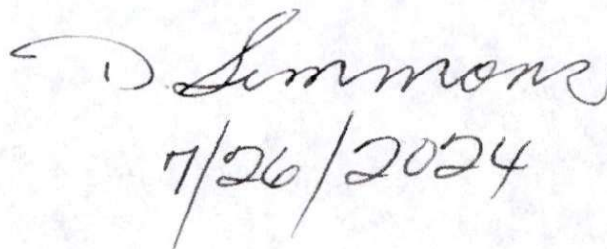 D. Simmons
7/26/2024